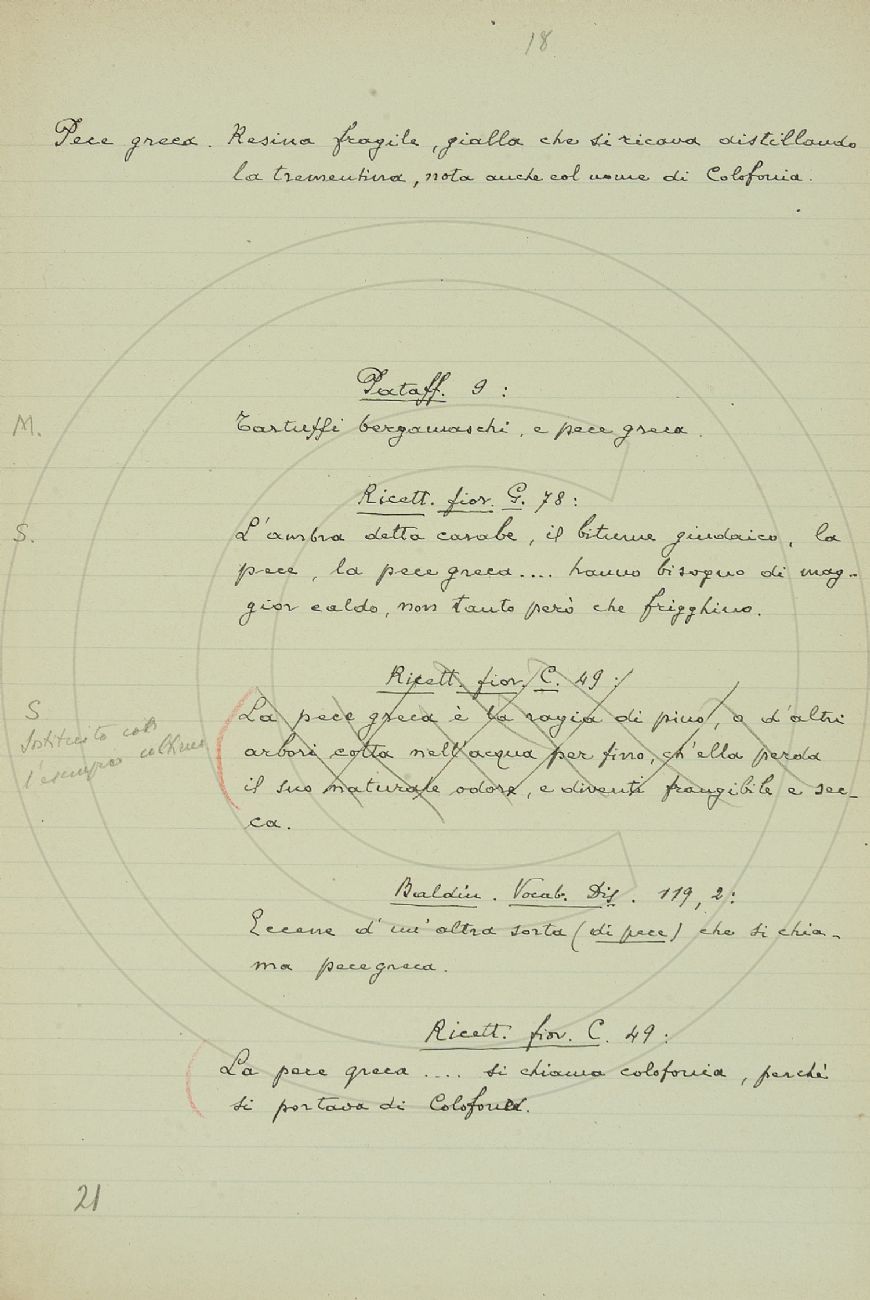 18
Pece greca. Resina fragile, gialla che si ricava distillando
la trementina, nota anche col nome di Colofonia.
Pataff. 9:
M.
Tartuffi bergamaschi, e pece greca.
Ricett. fior. G. 78:
S.
L'ambra detta carabe, il bitume giudaico, la
pece, la pece greca.... hanno bisogno di mag-
gior caldo, non tanto però che frigghino.
Ricett. fior. C. 49:
S
La pece greca è la ragia di pino, o d'altri
Sostituito con
arbori cotta nell'acqua per fino, ch'ella perda
l'esempio ultimo
il suo naturale odore, e diventi frangibile e sec-
ca.
Baldin. Vocab. Dis. 119, 2:
Eccene d'un'altra sorta (di pece) che si chia-
ma pece greca.
Ricett. fior. C. 49:
La pece greca .... si chiama colofonia, perché
si portava di Colofone.
21